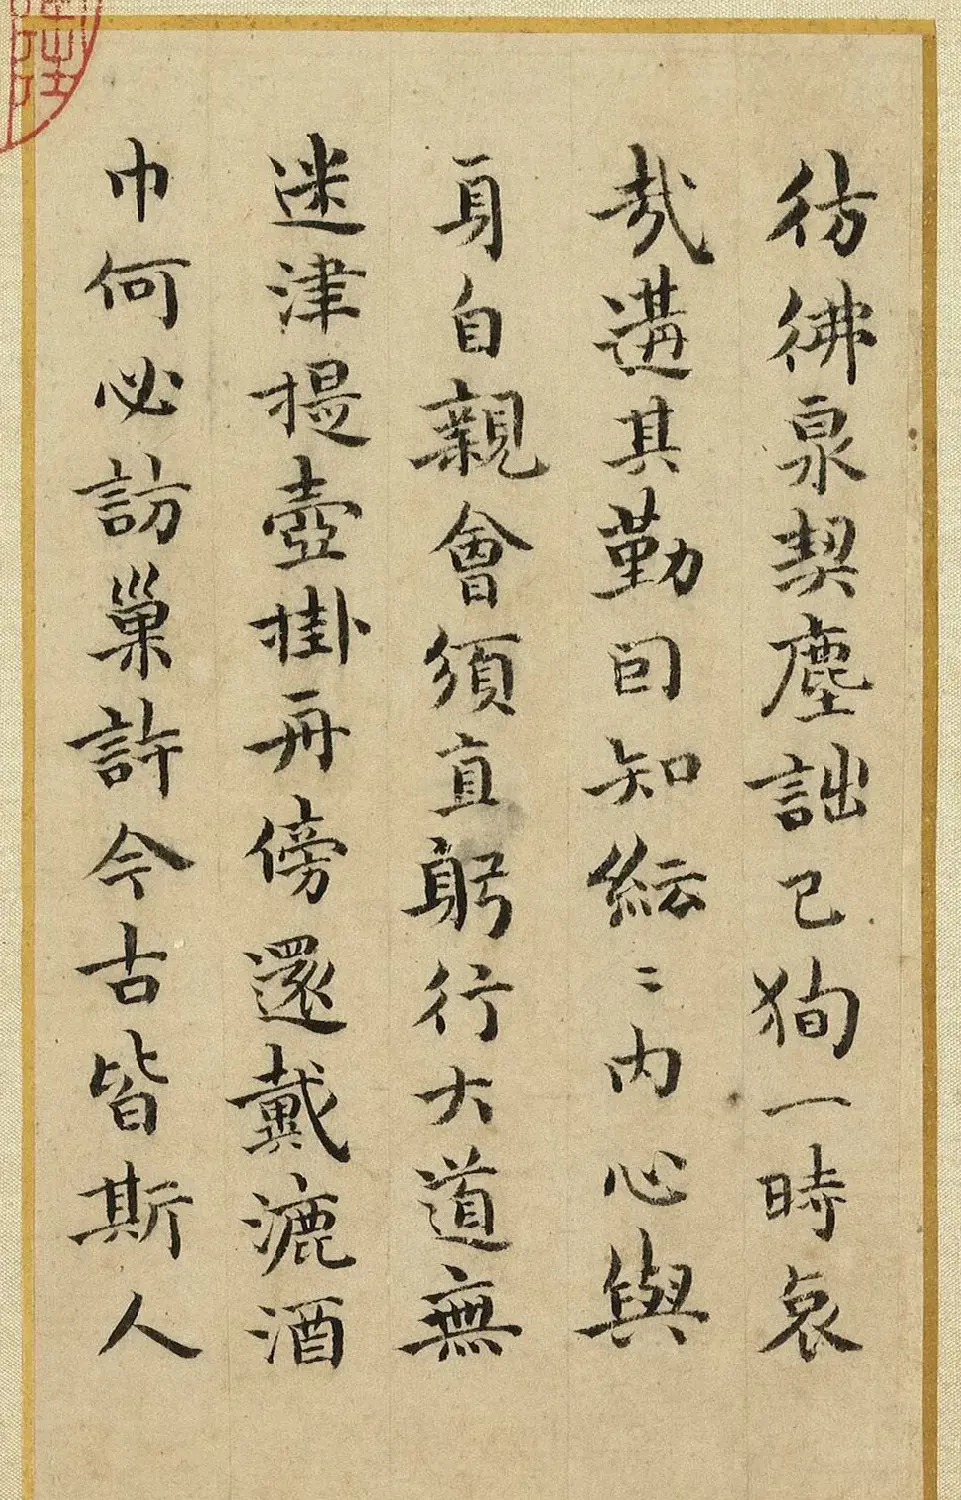 彷彿泉契塵詘已狥一時哀
哉遘其勤囙知紜〻内心與
身自親會須直躬行大道無
迷津提壺掛冄傍還戴漉酒
巾何必訪巢許今古皆斯人